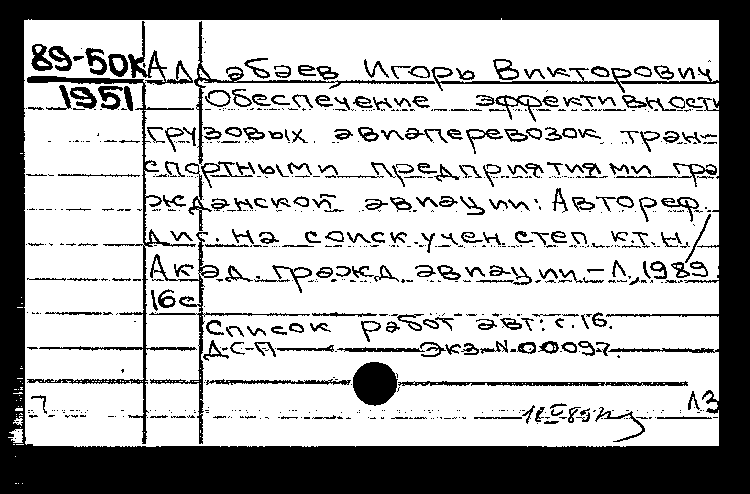 89-50к Алдабаев Игорь Викторович
1951 Обеспечение эффективности
грузовых авиаперевозок тран-
спортными предприятиями гра
жданской авиации: Автореф.
дис. на соиск. учен. степ. к.т.н. /
Акад. гражд. авиации. – Л., 1989.
16с
Список работ авт.: с. 16.
Д-С-П Экз. N 00097.
7 ЛЗ